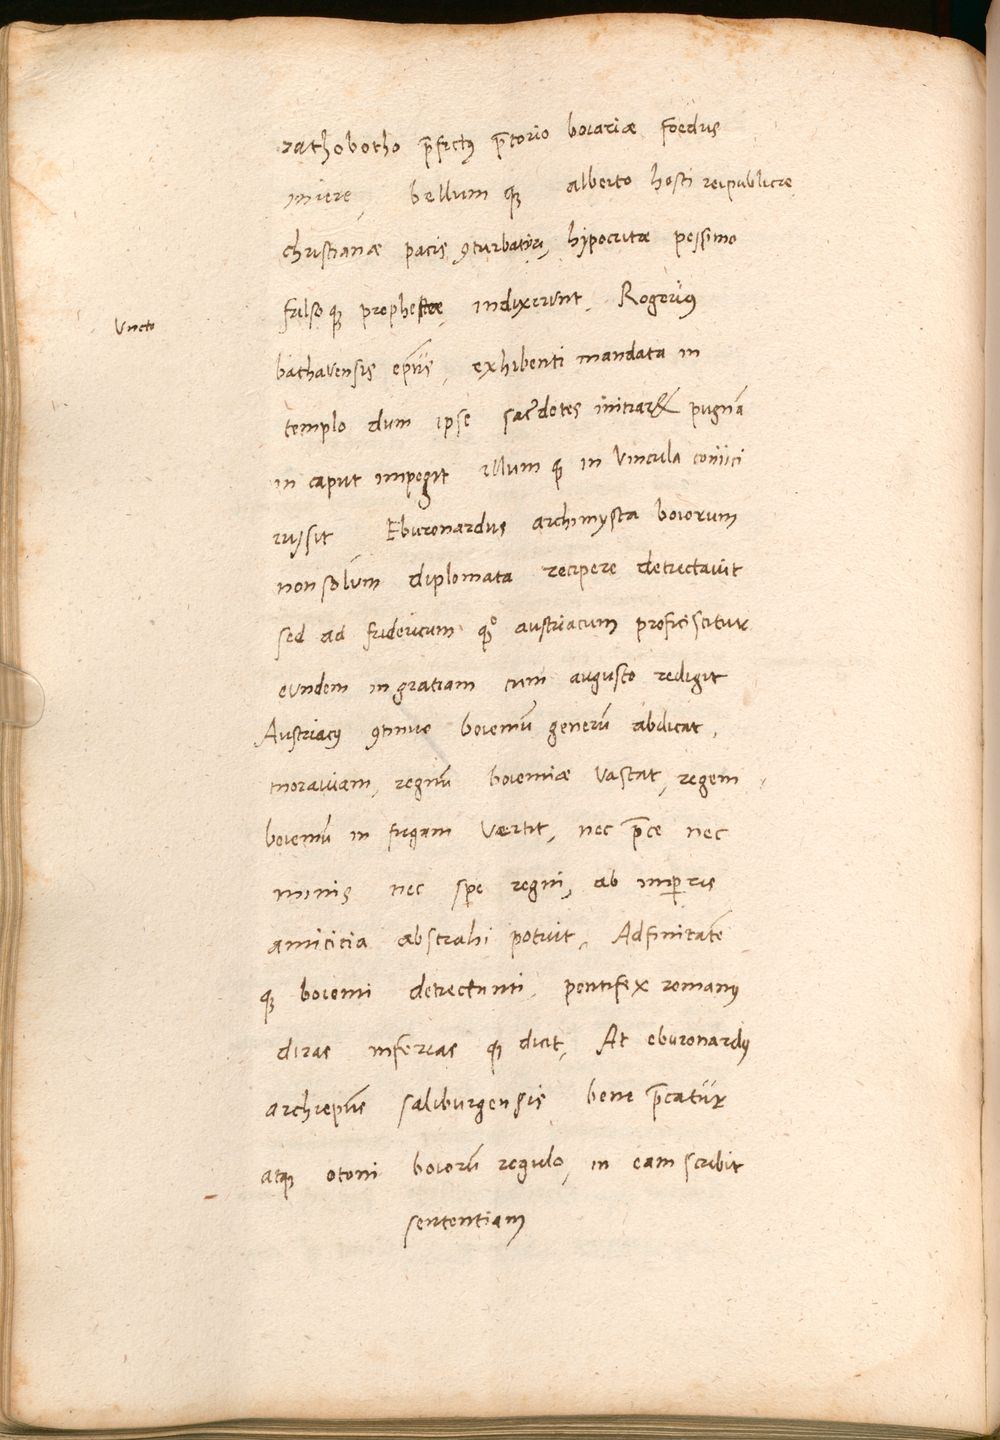 rathobotho p̄fectꝰ p̄torio boiariæ foedus
iniere, bellum qꝫ alberto hosti reipublicæ
christianæ pacis ꝯturbatori, hypocritæ pessimo
falso qꝫ prophetæ, indixerunt. Rogerius
Uncto
bathavensis ep̄us, exhibenti mandata in
templo dum ipse sac̄dotes initiaret pugnā
in caput impegit illum qꝫ in vincula coniici
iussit Eburonardus archimysta boiorum
non solum diplomata recipere detrectavit
sed ad fridericum qꝫ austriacum proficiscitur
eundem in gratiam cum augusto redigit
Austriacꝰ ꝯtinue boiemū generū abdicat,
moraviam, regnū boiemiæ vastat, regem
boiemū in fugam vertit, nec p̄ce nec
minis nec spe regni, ab imperis
amicitia abstrahi potuit, Adfinitatē
qꝫ boiemi detrectanti, pontifex romanꝰ
diras inferias qꝫ dicit, At eburonardꝰ
archiep̄us saliburgensis bene p̄catur
atqꝫ otoni boiorū regulo, in eam scribit
sententiam